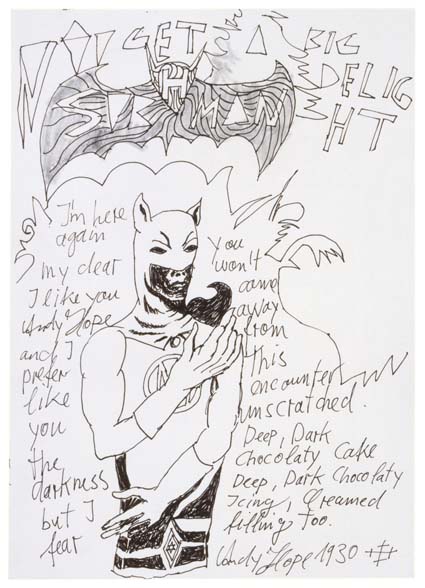 GET A BIG
DELIG
HT
I'm here
again
my dear
I like you
Andy Hope
and I
prefer
like
you
the
darkness
but I
fear
you
won't
come
away
from
this
encounter
unscratched.
Deep, Dark
Chocolaty Cake
Deep, Dark Chocolaty
Icing, Creamed
filling too.
Andy Hope 1930